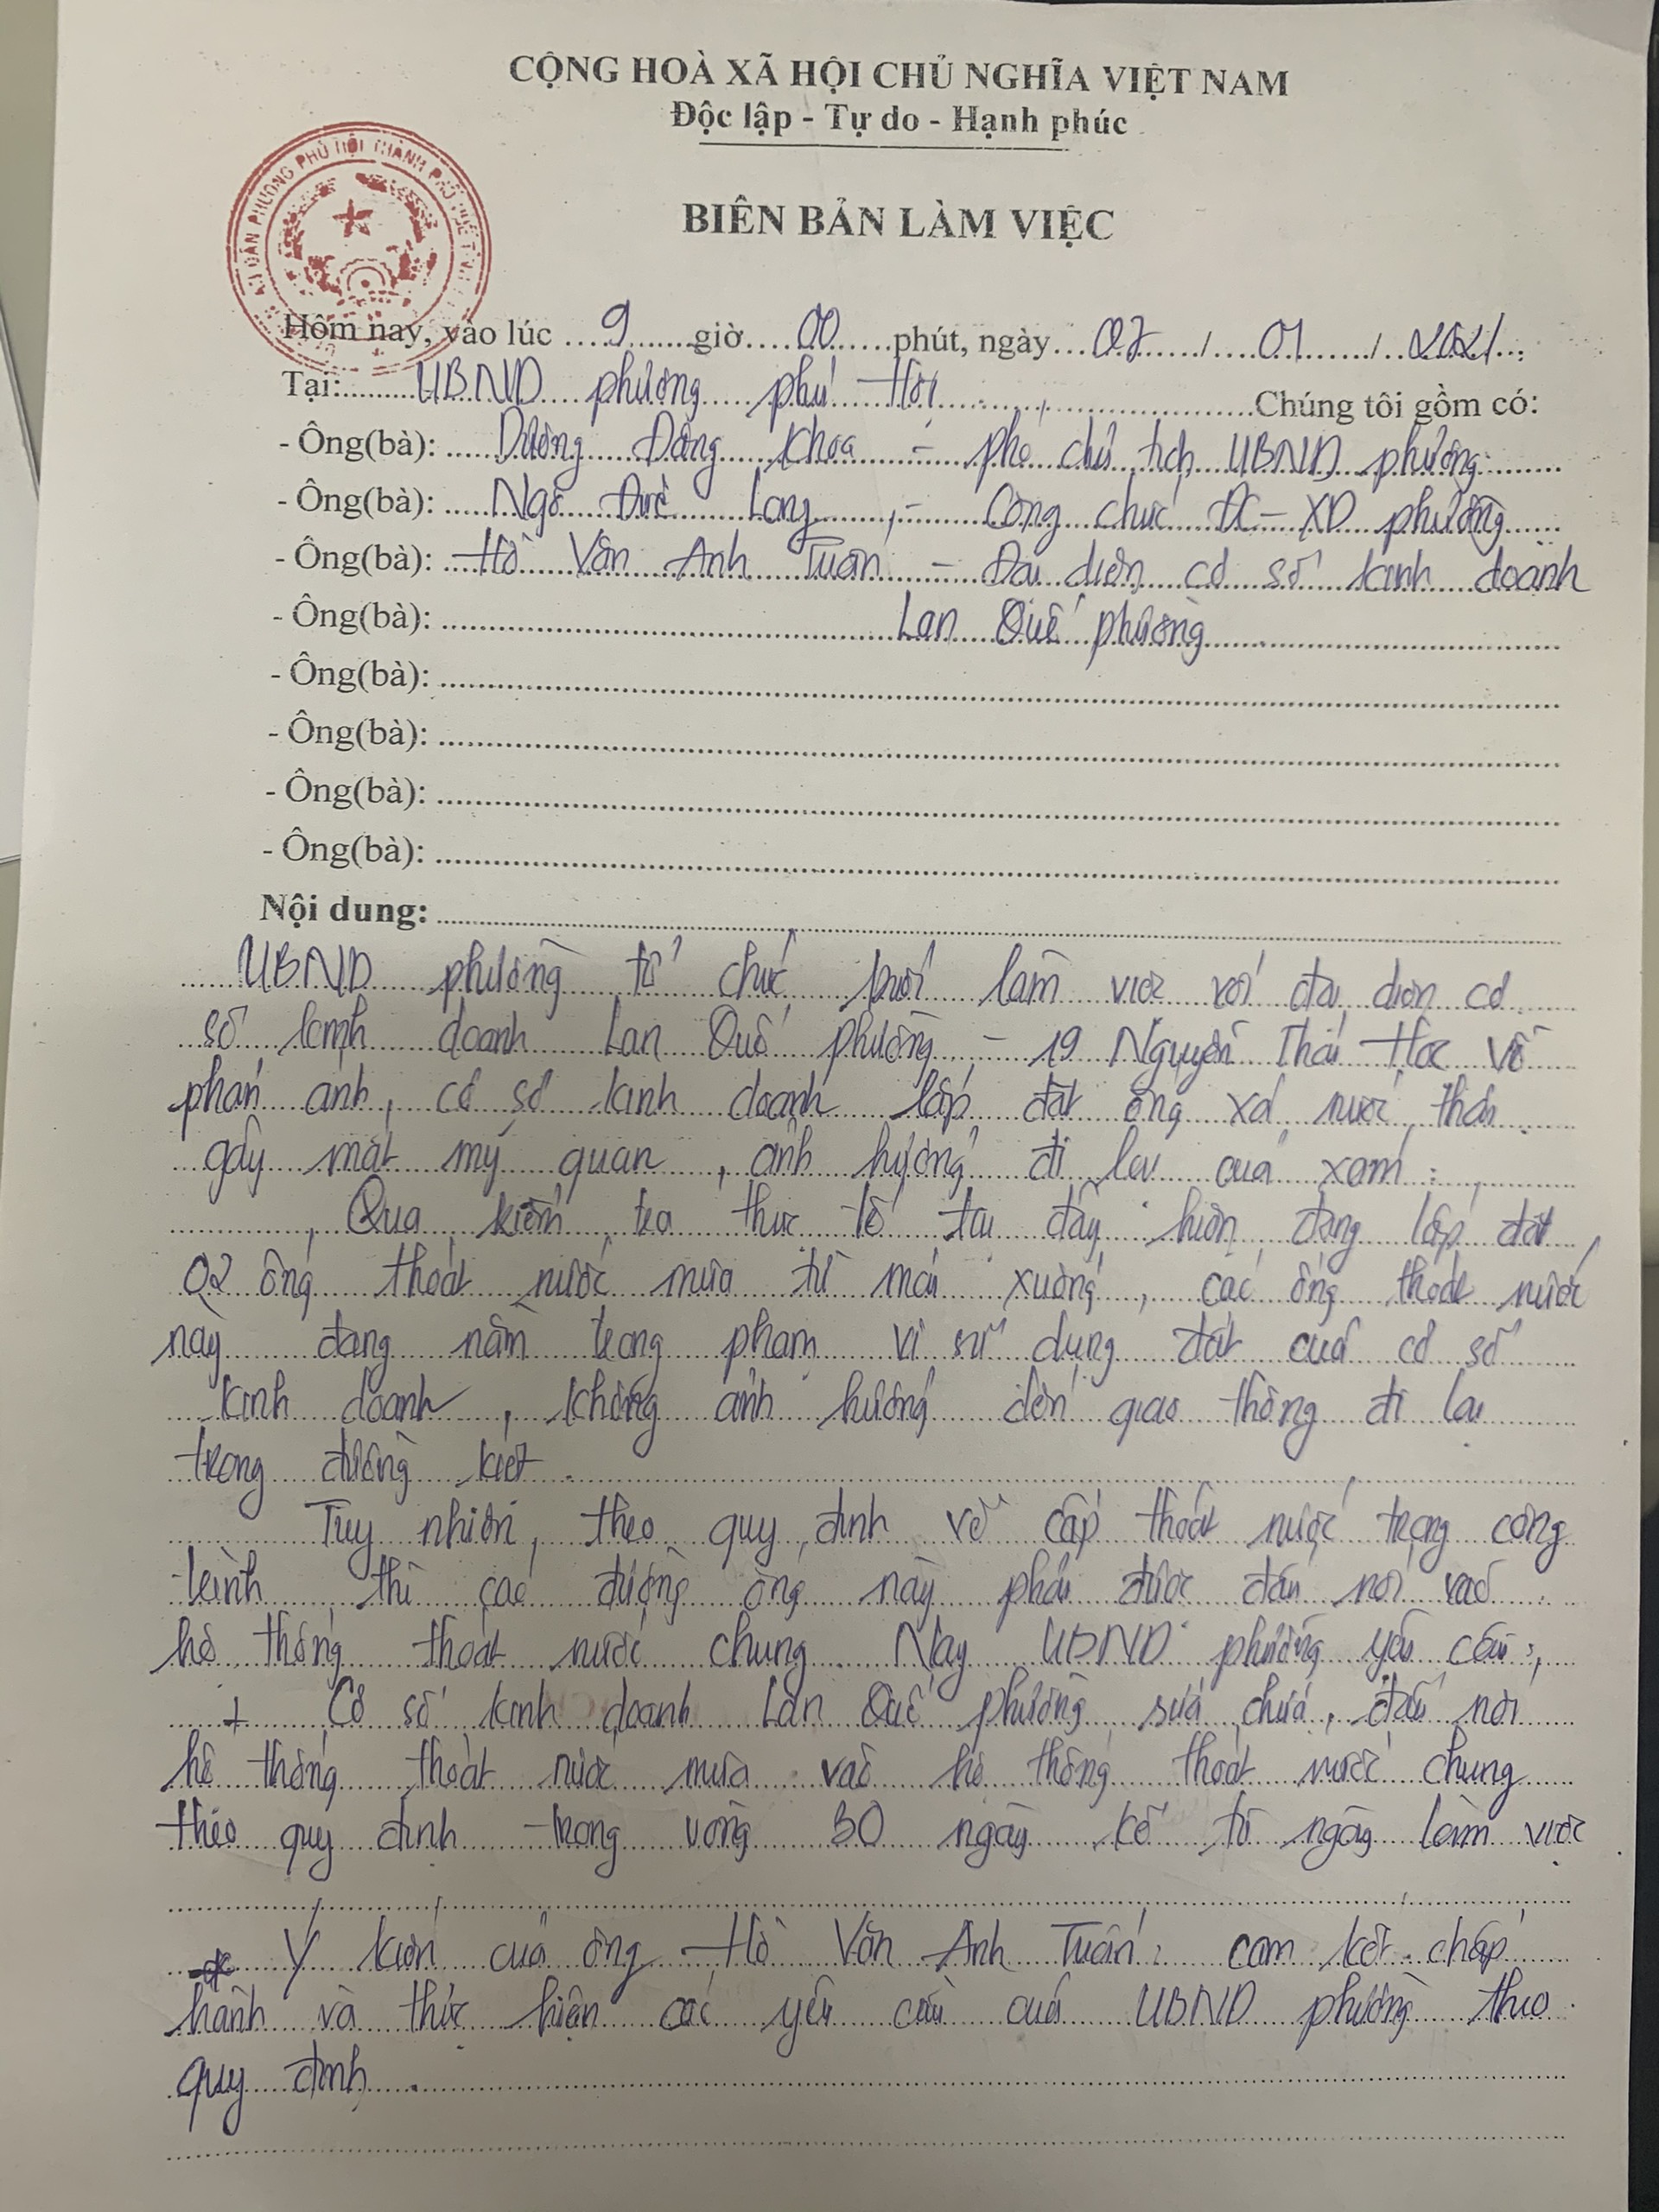 CỘNG HOÀ XÃ HỘI CHỦ NGHĨA VIỆT NAM
Độc lập - Tự do - Hạnh phúc
PHƯỜNG PHÚ HỘI THÀNH PHỐ HUẾ
BIÊN BẢN LÀM VIỆC
Hôm nay, vào lúc 9 giờ 00 phút, ngày 07 / 01 / 2021
Tại: UBND phường Phú Hội Chúng tôi gồm có:
- Ông(bà): Dương Đăng Khoa - phó chủ tịch UBND phường
- Ông(bà): Ngô Đức Long - Công chức ĐC-XD phường
- Ông(bà): Hồ Văn Anh Tuấn - Đại diện cơ sở kinh doanh
- Ông(bà): Lan Quế phường
- Ông(bà):
- Ông(bà):
- Ông(bà):
- Ông(bà):
Nội dung:
UBND phường tổ chức buổi làm việc với đại diện cơ
sở kinh doanh Lan Quế phường - 19 Nguyễn Thái Học về
phản ánh, cơ sở kinh doanh lắp đặt ống xả nước thải
gây mất mỹ quan, ảnh hưởng đi lại của xóm.
Qua kiểm tra thực tế tại đây hiện đang lắp đặt
02 ống thoát nước mưa từ mái xuống, các ống thoát nước
này đang nằm trong phạm vi sử dụng đất của cơ sở
kinh doanh, không ảnh hưởng đến giao thông đi lại
trong đường kiệt.
Tuy nhiên, theo quy định về cấp thoát nước trong công
trình thì các đường ống này phải được đấu nối vào
hệ thống thoát nước chung. Nay UBND phường yêu cầu:
+ Cơ sở kinh doanh Lan Quế phường sửa chữa, đấu nối
hệ thống thoát nước mưa vào hệ thống thoát nước chung
theo quy định trong vòng 30 ngày kể từ ngày làm việc
Ý kiến của ông Hồ Văn Anh Tuấn: cam kết chấp
hành và thực hiện các yêu cầu của UBND phường theo
quy định.